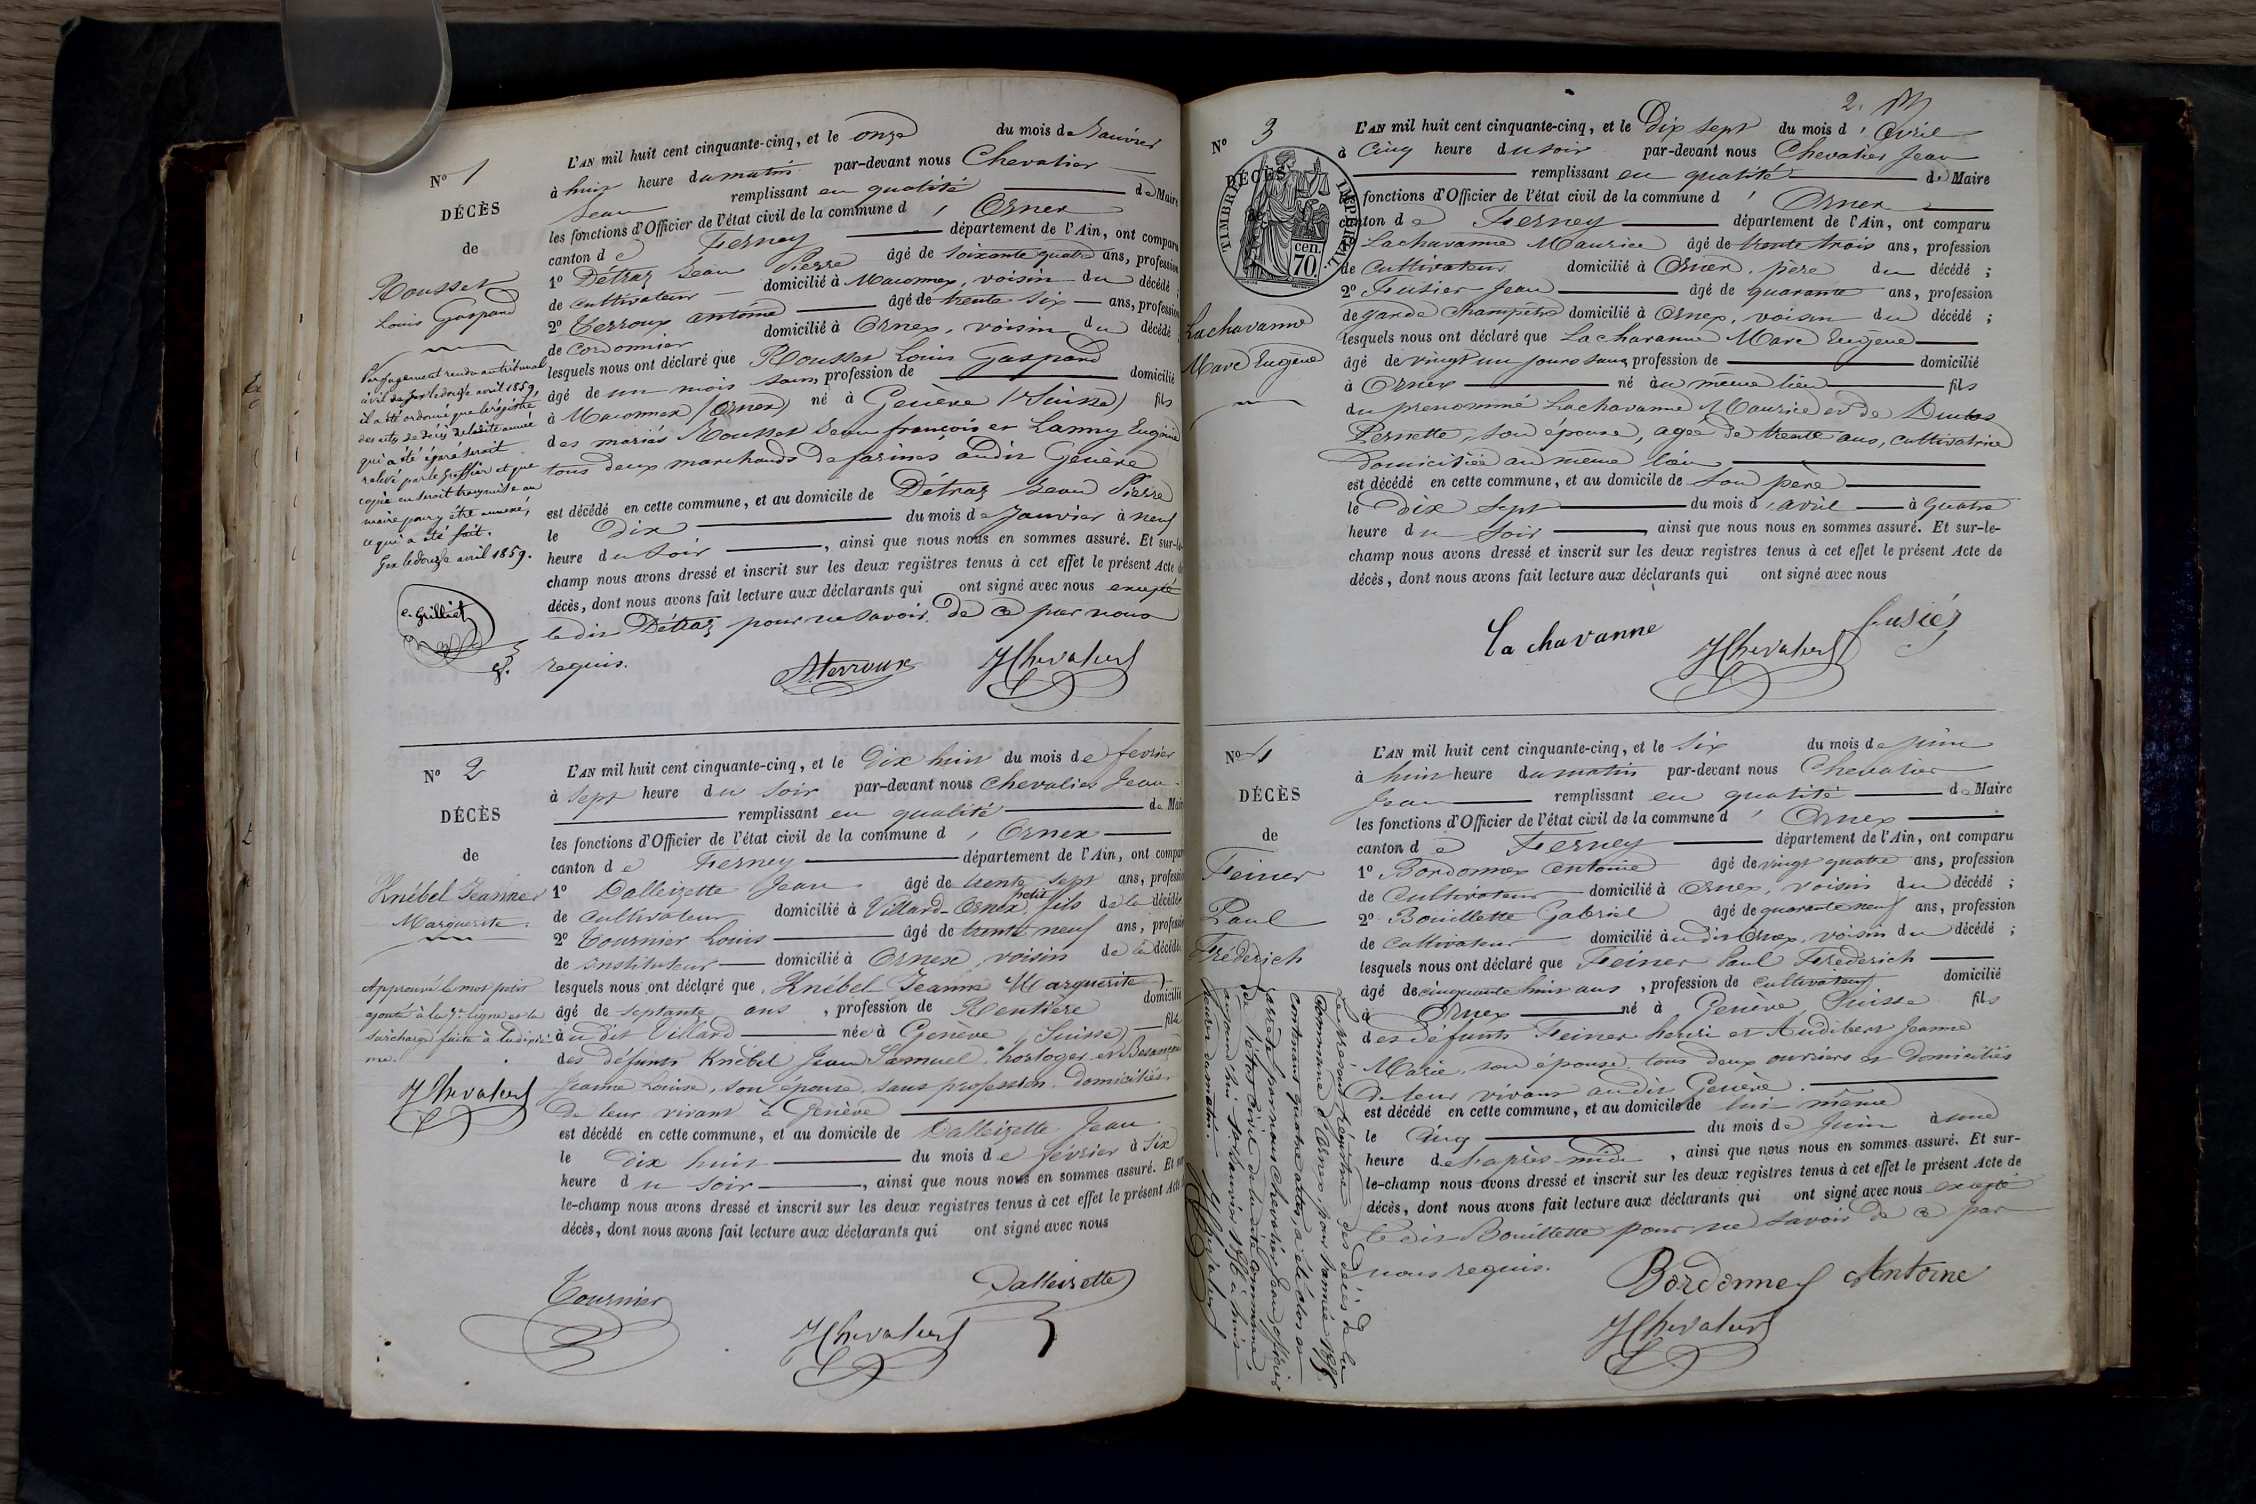 N° 1
DÉCÈS
de
Rousset
Louis Gaspard
Par jugement rendu au tribunal
civil de Gex le douze avril 1859,
il a été ordonné que le registre
des actes de décès de ladite année
qui a été égaré serait
relevé par le Greffier et que
copie en serait transmise au
maire pour y être annexé,
ce qui a été fait.
Gex le douze avril 1859.
C. Grilliet
L'AN mil huit cent cinquante-cinq, et le onze du mois de Janvier
à huit heure du matin par-devant nous Chevalier
Jean remplissant en qualité de Maire
les fonctions d'Officier de l'état civil de la commune d'Ornex
canton de Ferney département de l'Ain, ont comparu
1° Détraz Jean Pierre âgé de soixante quatre ans, profession
de cultivateur domicilié à Maconnex, voisin du décédé ;
2° Terroux antoine âgé de trente six ans, profession
de Cordonnier domicilié à Ornex, voisin du décédé ;
lesquels nous ont déclaré que Rousset Louis Gaspard
âgé de un mois sans, profession de domicilié
à Maconnex (Ornex) né à Genève (Suisse) fils
des mariés Rousset Jean françois et Lanny Eugénie
tous deux marchands de farines audit Genève
est décédé en cette commune, et au domicile de Détraz Jean Pierre
le Dix du mois de Janvier à neuf
heure du soir , ainsi que nous nous en sommes assuré. Et sur-le-
champ nous avons dressé et inscrit sur les deux registres tenus à cet effet le présent Acte de
décès, dont nous avons fait lecture aux déclarants qui ont signé avec nous excepté
le dit Détraz pour ne savoir de ce par nous
requis.
A. terroux JChevalier
N° 2
DÉCÈS
de
Knébel Jeanne
Marguerite.
Approuvé le mot petit
ajouté à la 7e ligne et la
surcharge faite à la dixiè
me.
JChevalier
L'AN mil huit cent cinquante-cinq, et le Dix huit du mois de fevrier
à sept heure du soir par-devant nous Chevalier Jean
remplissant en qualité de Maire
les fonctions d'Officier de l'état civil de la commune d'Ornex
canton de Ferney département de l'Ain, ont comparu
1° Dalleizette Jean âgé de trente sept ans, profession
de Cultivateur domicilié à Villard-Ornex, petit fils de la décédée
2° Tournier Louis âgé de trente neuf ans, profession
de instituteur domicilié à Ornex voisin de la décédée
lesquels nous ont déclaré que Knébel Jeanne Marguerite
âgé de septante ans , profession de Rentière domicilié
à udit Villard née à Genève (Suisse) fille
des défunts Knébel Jean Samuel, horloger et Besançon
Jeanne Louise, son épouse, sans profession. Domiciliés
de leur vivant à Genève
est décédé en cette commune, et au domicile de Dalleizette Jean
le dix huit du mois de février à Six
heure du soir , ainsi que nous nous en sommes assuré. Et sur-
le-champ nous avons dressé et inscrit sur les deux registres tenus à cet effet le présent Acte
décès, dont nous avons fait lecture aux déclarants qui ont signé avec nous
Tournier JChevalier Dalleizette
2.
N° 3
DÉCÈS
de
TIMBRE IMPÉRIAL.
cen.
70.
Lachavanne
Marc Eugène
L'AN mil huit cent cinquante-cinq, et le Dix sept du mois d'Avril
à Cinq heure du soir par-devant nous Chevalier Jean
remplissant en qualité de Maire
les fonctions d'Officier de l'état civil de la commune d'Ornex
canton de Ferney département de l'Ain, ont comparu
Lachavanne Maurice âgé de trente trois ans, profession
de cultivateur domicilié à Ornex, père du décédé ;
2° Fusier Jean âgé de quarante ans, profession
de garde champêtre domicilié à Ornex, voisin du décédé ;
lesquels nous ont déclaré que Lachavanne Marc Eugène
âgé de vingt un jours sans, profession de domicilié
à Ornex né au même lieu fils
du prenommé Lachavanne Maurice et de Duclos
Pernette, son épouse, agée de trente ans, cultivatrice
Domiciliée au même lieu
est décédé en cette commune, et au domicile de son père
le Dix sept du mois d'avril à quatre
heure du soir , ainsi que nous nous en sommes assuré. Et sur-le-
champ nous avons dressé et inscrit sur les deux registres tenus à cet effet le présent Acte de
décès, dont nous avons fait lecture aux déclarants qui ont signé avec nous
La chavanne JChevalier fusiez
N° 4
DÉCÈS
de
Feiner
Paul
Fréderich
L'AN mil huit cent cinquante-cinq, et le Six du mois de Juin
à huit heure du matin par-devant nous Chevalier
Jean remplissant en qualité de Maire
les fonctions d'Officier de l'état civil de la commune d'Ornex
canton de Ferney département de l'Ain, ont comparu
1° Bordonnex antoine âgé de vingt quatre ans, profession
de Cultivateur domicilié à Ornex, voisin du décédé ;
2° Bouillette Gabriel âgé de quarante neuf ans, profession
de cultivateur domicilié à udit Ornex, voisin du décédé ;
lesquels nous ont déclaré que Feiner Paul Frederich
âgé de cinquante huit ans , profession de cultivateur domicilié
à Ornex né à Genève Suisse fils
des défunts Feiner henri et Audibert Jeanne
Marie, son épouse, tous deux ouvriers et Domiciliés
de leur vivant audit Genève.
est décédé en cette commune, et au domicile de lui même
le Cinq du mois de Juin à une
heure de l'après-midi , ainsi que nous nous en sommes assuré. Et sur-
le-champ nous avons dressé et inscrit sur les deux registres tenus à cet effet le présent Acte de
décès, dont nous avons fait lecture aux déclarants qui ont signé avec nous excepté
le dit Bouillette pour ne savoir de ce par
nous requis.
Bordonnex Antoine
JChevalier
Le présent régistre des décès de la
Commune d'Ornex, pour l'année 1855
contenant quatre actes, a été clos et
arrêté par nous Chevalier Jean, officier
de l'état civil de ladite Commune,
aujourd'hui 1er Janvier 1856 à huit
heures du matin. JChevalier